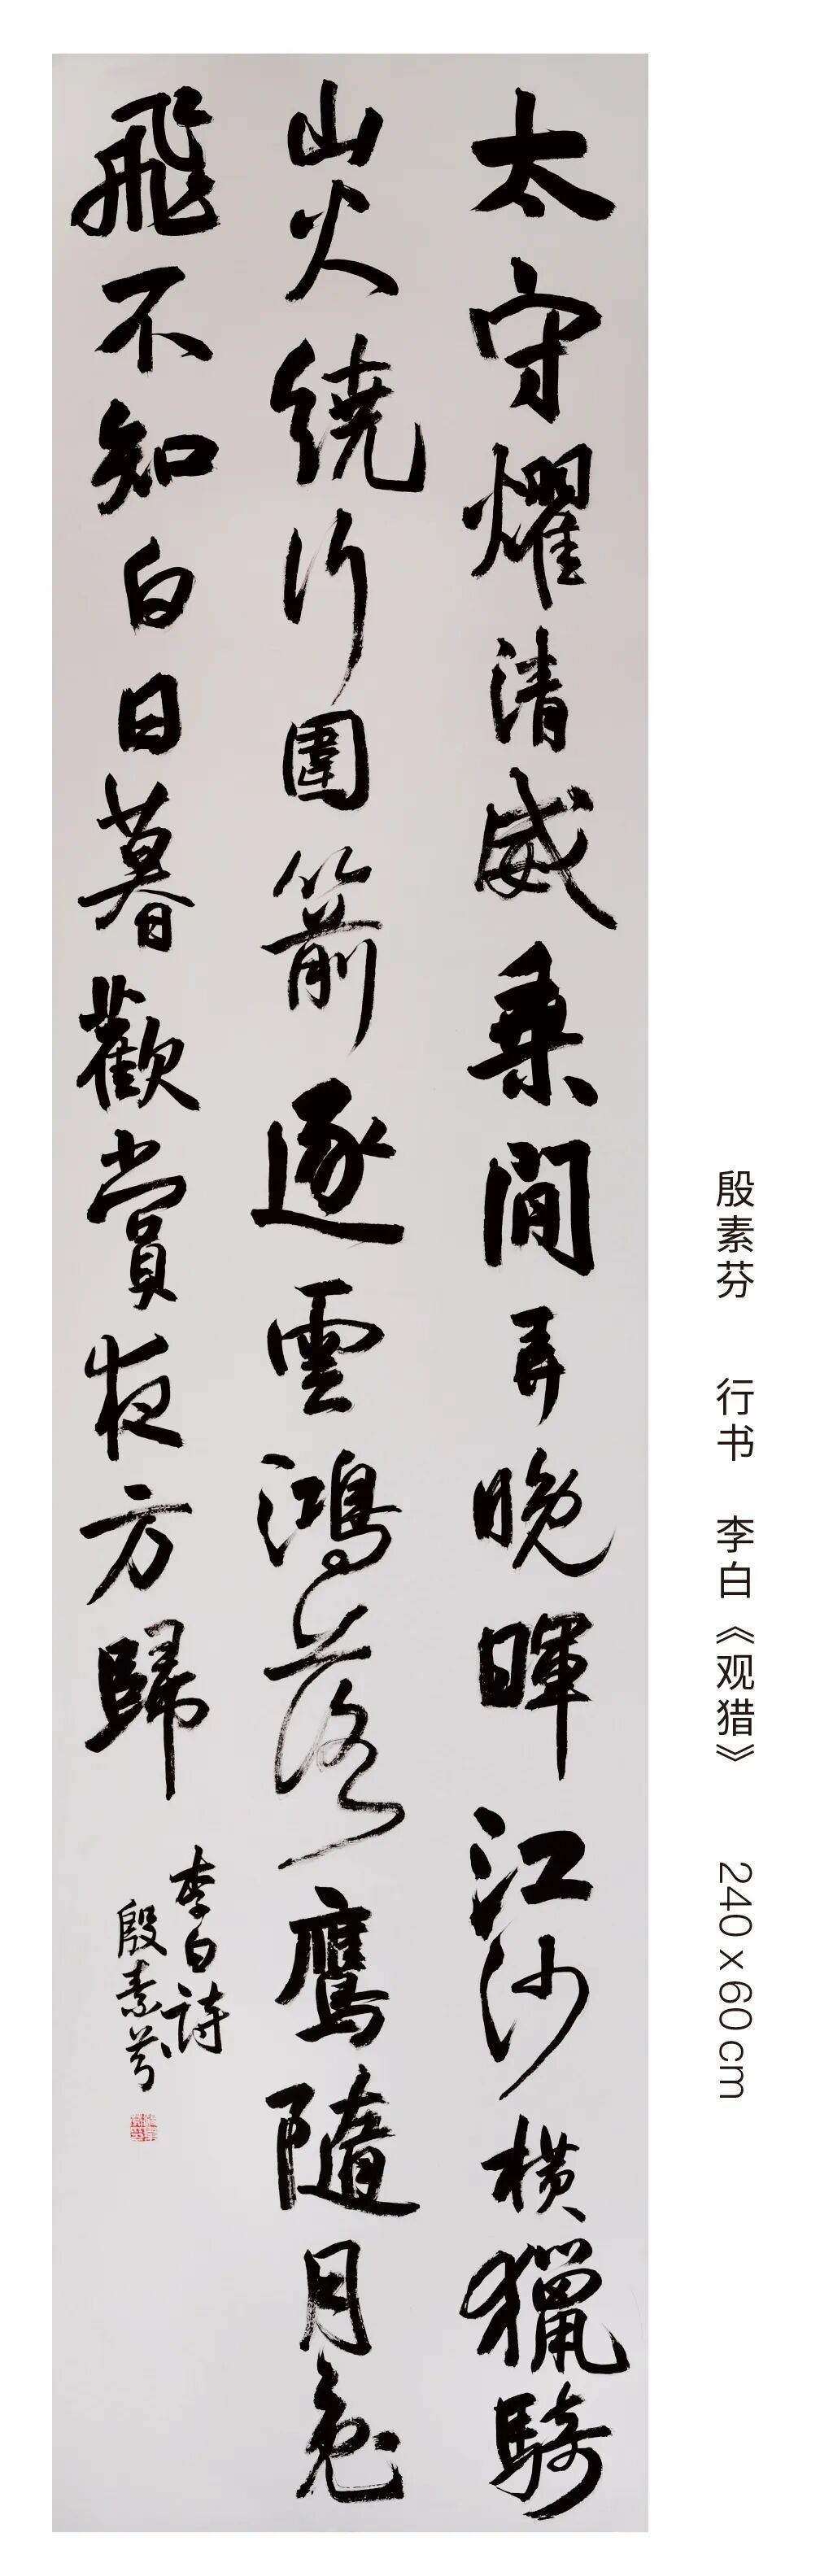 太守燿清威乘閒弄晚暉江沙横獵騎
山火繞行圍箭逐雲鴻落鷹隨月兔
飛不知白日暮歡賞夜方歸
李白詩
殷素芬
殷素芬 行书 李白《观猎》 240 x 60 cm